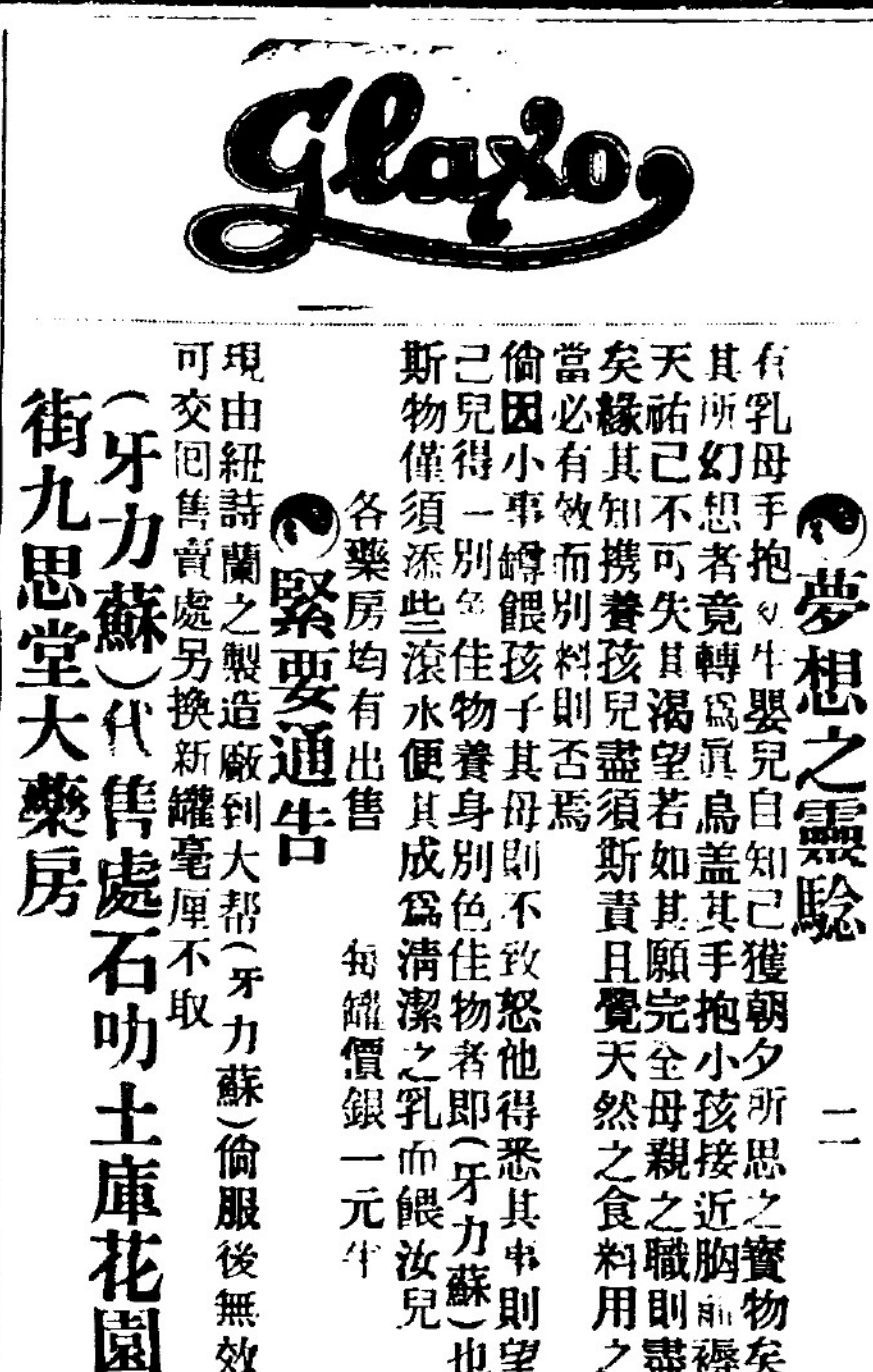 Glaxo
夢想之靈騐 二
有乳母手抱幼牛嬰兒自知己獲朝夕所思之寳物矣
其所幻想者竟轉爲眞鳥盖其手抱小孩接近胸前褥
天祐己不可失其渴望若如其願完全母親之職則盡
矣緣其知携養孩兒盡須斯責且覺天然之食料用之
當必有效而別料則否焉
倘因小事罇餵孩子其母則不致怒他得悉其事則望
己兒得一別色佳物養身別色佳物者即(牙力蘇)也
斯物僅須添些滾水便其成爲清潔之乳而餵汝兒
各藥房均有出售 每罐價銀一元半
緊要通告
現由紐詩蘭之製造廠到大帮(牙力蘇)倘服後無效
可交囘售賣處另換新罐毫厘不取
(牙力蘇)代售處石叻土庫花園
街九思堂大藥房